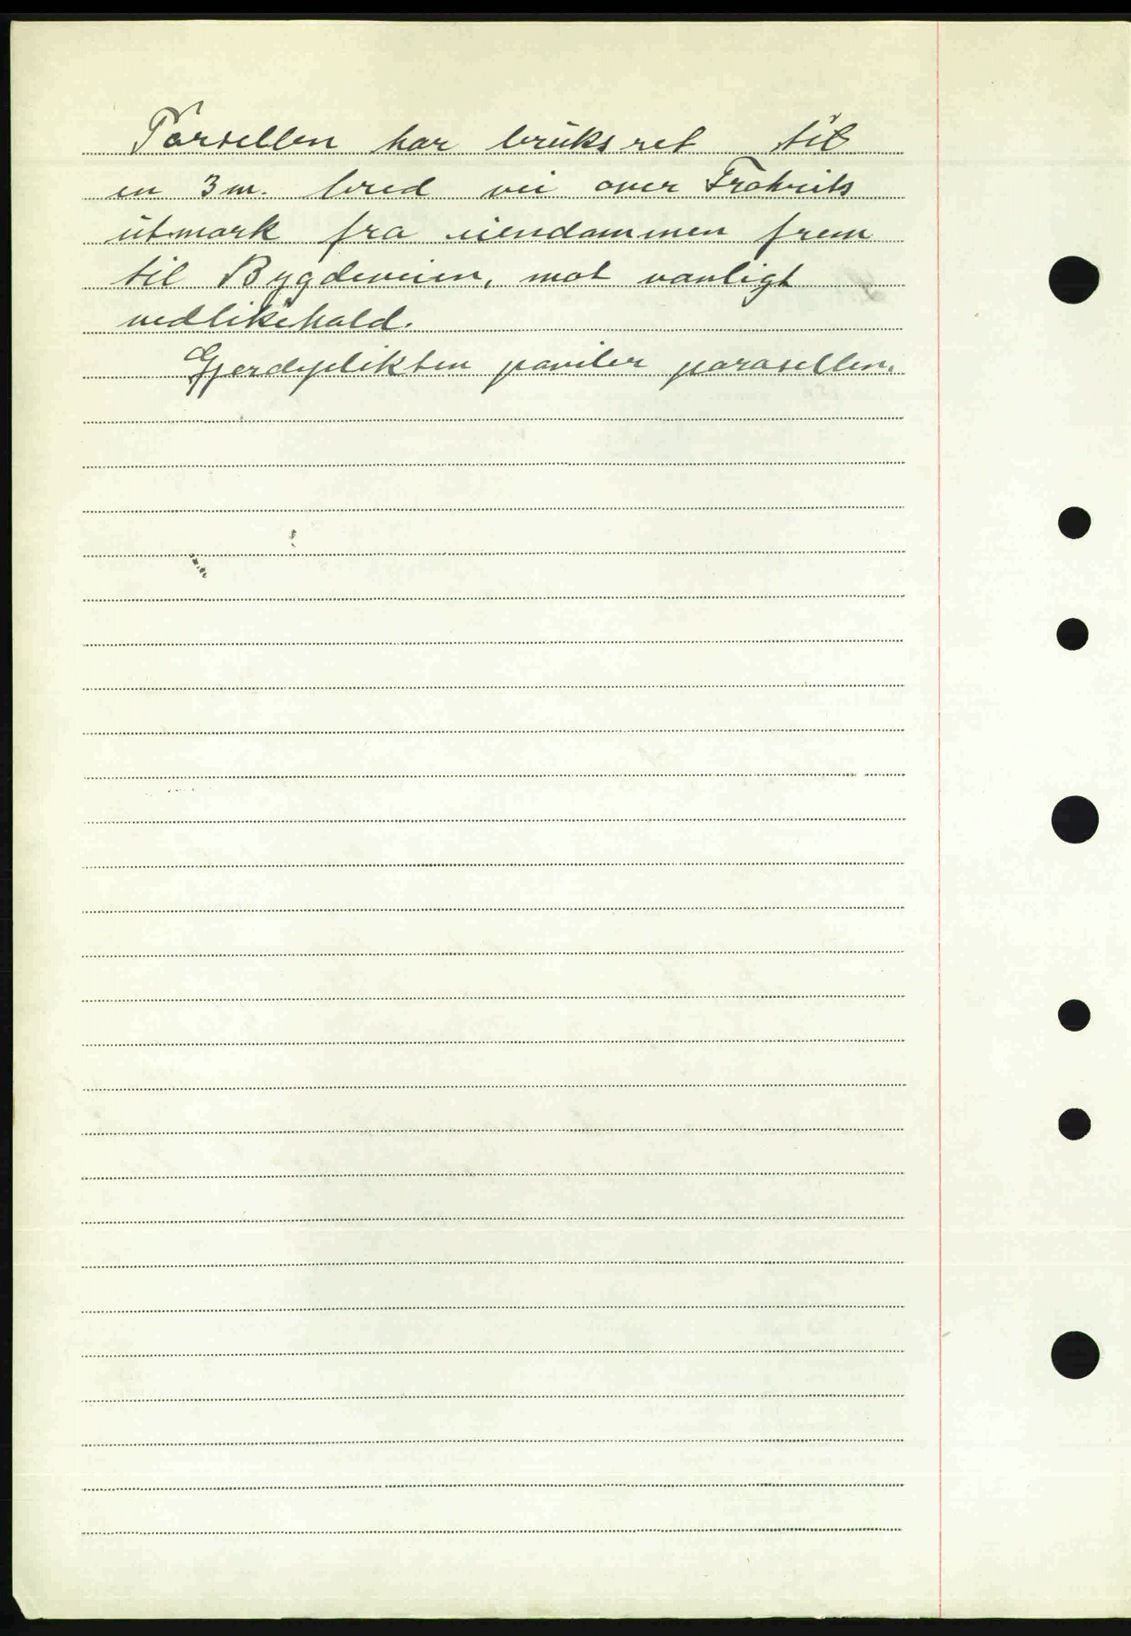 Parsellen har bruksret til
en 3 m. bred vei over
utmark fra eiendammen frem
til Bygdeveien, mot vanligt
vedlikehald.
Gjerdeplikten paviler parasellen.